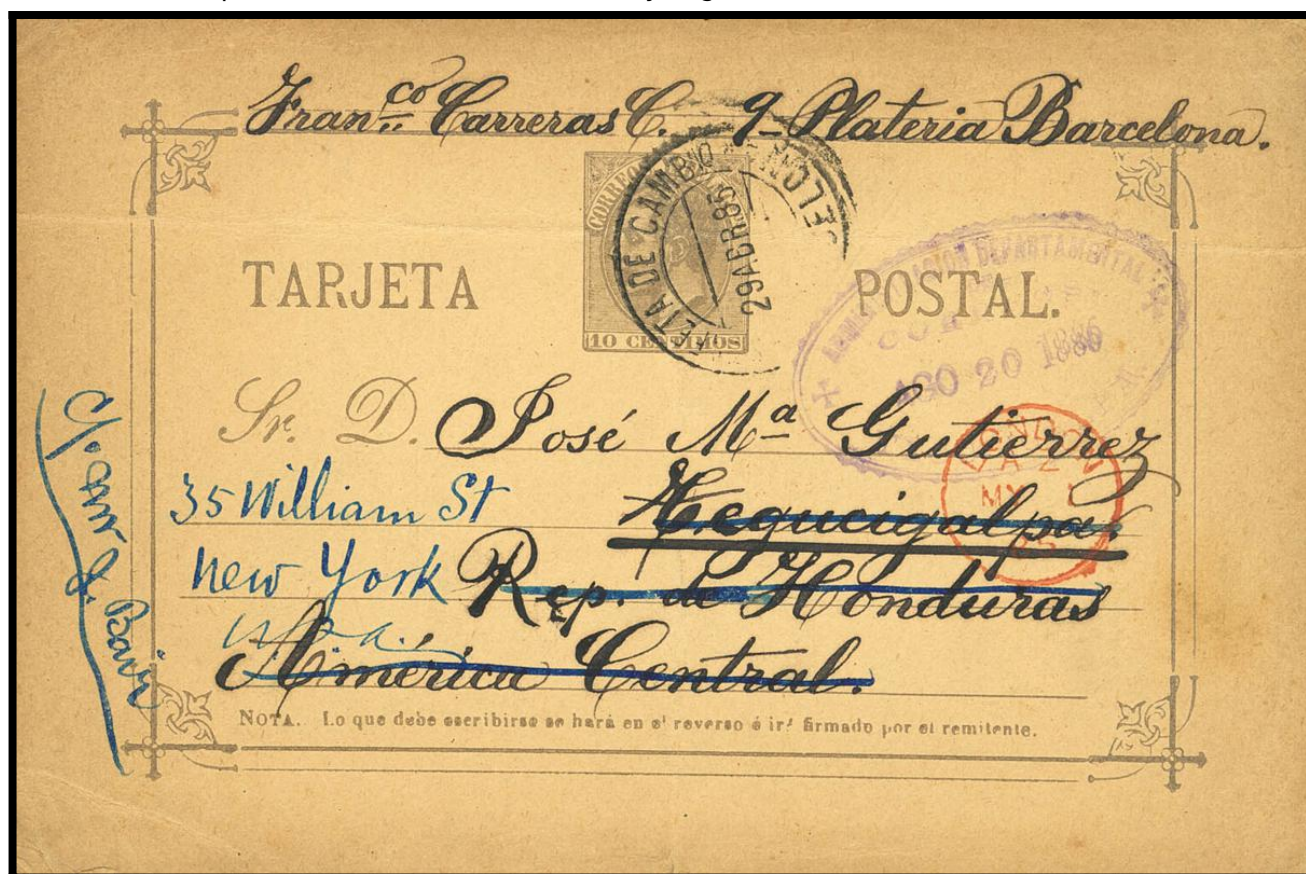 Fran.co Carreras C. 9- Plateria Barcelona.
CORREOS
10 CENTIMOS
DE CAMBIO
29 ABR. 85
TARJETA POSTAL.
DEPARTAMENTAL
AGO 20 1886
LONDON
MY 1
Sr. D. José Mª Gutierrez
35 William St Tegucigalpa.
New York Rep. de Honduras
América Central.
NOTA. Lo que debe escribirse se hará en el reverso é irá firmado por el remitente.